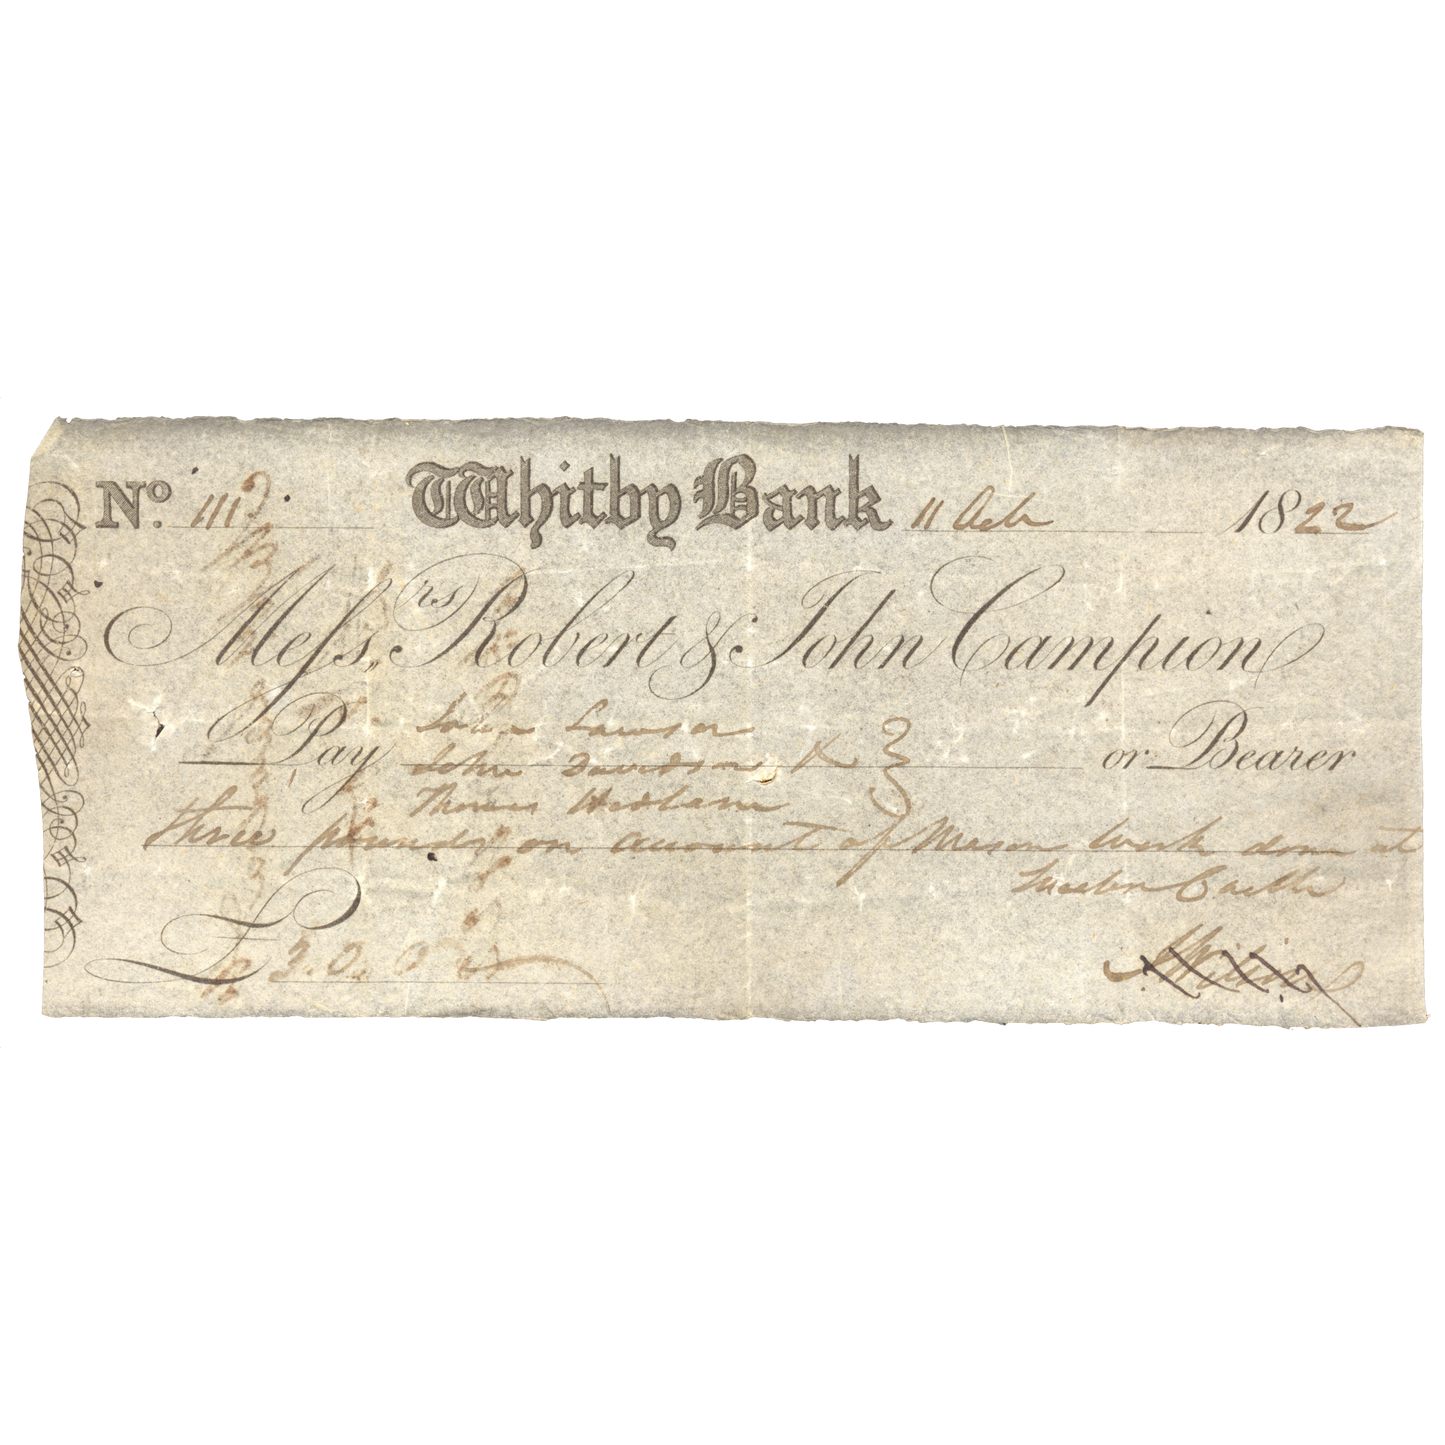 No. 111 Whitby Bank 11 Octr 1822
Messrs. Robert & John Campion
Pay John Lawson or Bearer
John Davidson &
Thomas Hedlam
three pounds on account of Mason Work done at
Castle
£ 3. 0. 0